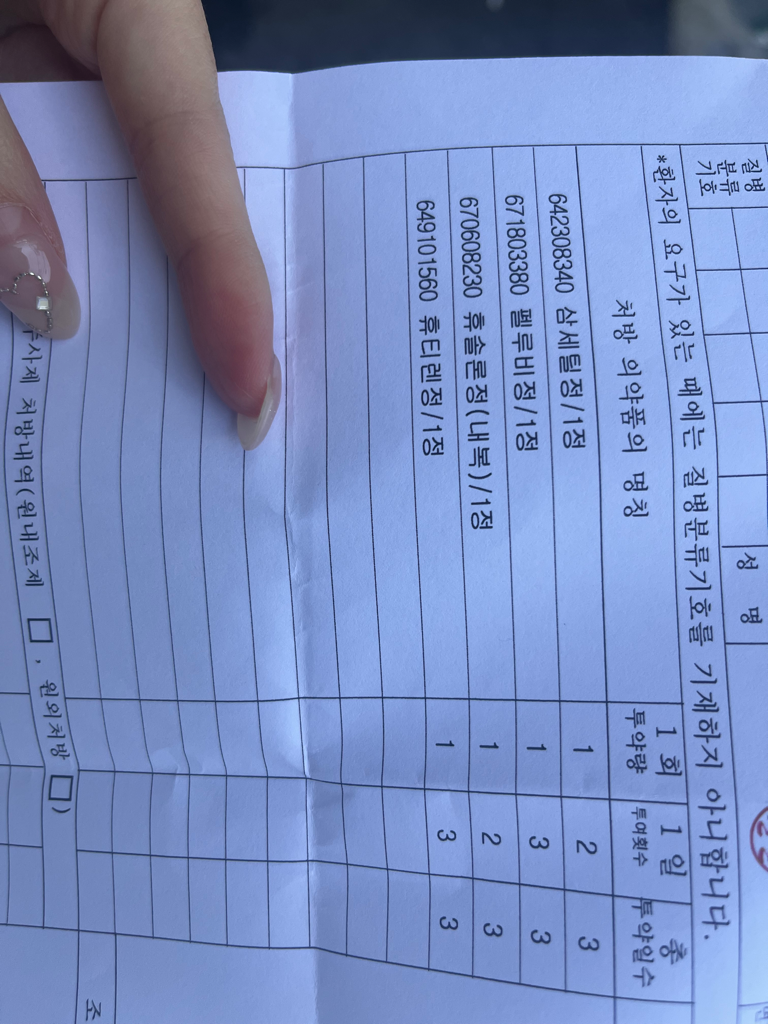 질병
분류
기호
성 명
*환자의 요구가 있는 때에는 질병분류기호를 기재하지 아니합니다.
처방 의약품의 명칭
1 회
투약량
1 일
투여횟수
총
투약일수
642308340 삼세틸정/1정 1 2 3
671803380 펠루비정/1정 1 3 3
670608230 휴솔론정(내복)/1정 1 2 3
649101560 휴티렌정/1정 1 3 3
사제 처방내역(원내조제 □, 원외처방 □)
조